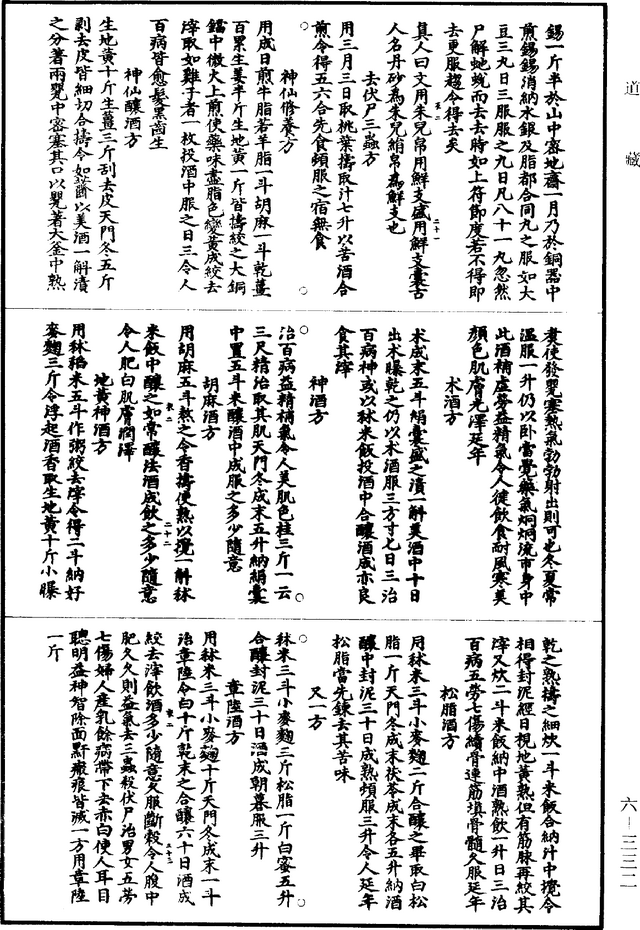 道藏
錫一斤半於山中密地齋一月乃於銅器中
煎錫錫消納水銀及脂都合同丸之服如大
豆三丸日三服服之九日凡八十一丸忽然
尸解蛇蛻而去去時如上符節度若不得即
去更服趨令得去矣
真人曰文用朱兒帛用鮮支盛用鮮支囊古
人名丹砂為朱兒絹帛為鮮支也
去伏尸三蟲方
用三月三日取桃葉擣取汁七升以苦酒合
煎令得五六合先食頓服之宿無食
神仙脩養方
用成日煎牛脂若羊脂一斗胡麻一斗乾薑
百累生薑半斤生地黃一斤皆擣絞之大銅
鐺中微火上煎使藥味盡脂色變黃成絞去
滓取如雞子者一枚投酒中服之日三令人
百病皆愈髮黑齒生
神仙釀酒方
生地黃十斤生薑三斤刮去皮天門冬五斤
剥去皮皆細切合擣令如虀以美酒一斛漬
之分著兩甖中密塞其口以甖著大釜中熟
煮使發甖塞熱氣勃勃射出則可也冬夏常
溫服一升仍以卧當覺藥氣炯炯流市身中
此酒補虛勞益精氣令人健飲食耐風寒美
顏色肌膚光澤延年
术酒方
术成末五斗絹囊盛之漬一斛美酒中十日
出术曝乾之仍以术酒服三方寸七日三治
百病神或以秫米飯投酒中合釀酒成亦良
食其滓
神酒方
治百病益精補氣令人美肌色桂三斤一云
三尺精治取其肌天門冬成末五升納絹囊
中置五斗米釀酒中成服之多少隨意
胡麻酒方
用胡麻五斗熬之令香擣使熟以攪一斛秫
米飯中釀之如常釀法酒成飲之多少隨意
令人肥白肌膚潤澤
地黃神酒方
用秫稻米五斗作粥絞去滓令得二斗納好
麥麴三斤令浮起酒香取生地黃十斤小曝
乾之熟擣之細炊一斗米飯合納汁中攪令
相得封泥經日視地黃熟但有筋脉再絞其
滓又炊二斗米飯納中酒熟飲一升日三治
百病五勞七傷續骨連筋填骨髓久服延年
松脂酒方
用秫米三斗小麥麴二斤合釀之畢取白松
脂一斤天門冬成末茯苓成末各五升納酒
釀中封泥三十日成熟頻服三升令人延年
松脂當先鍊去其苦味
又一方
秫米三斗小麥麴三斤松脂一斤白蜜五升
合釀封泥三十日酒成朝暮服三升
章陸酒方
用秫米三斗小麥麴十斤天門冬成末一斗
治章陸令白十斤乾末之合釀六十日酒成
絞去滓飲酒多少隨意久服斷穀令人腹中
肥久久則益氣去三蟲殺伏尸治男女五勞
七傷婦人産乳餘病帶下去赤白使人耳目
聰明益神智除面䵟瘢痕皆滅一方用章陸
一斤
六—三三二